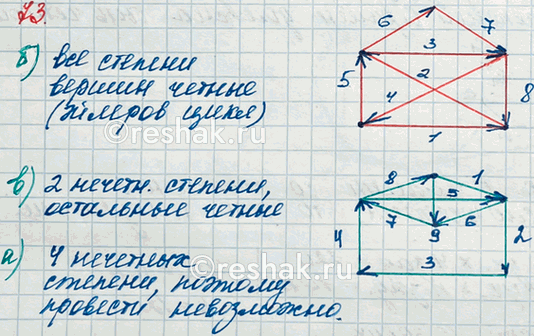 73.
б) все степени
вершин четные
(Эйлеров цикл)
6 7
3
5 2
4 8
1
в) 2 нечетн. степени,
остальные четные
8 1
5
7 6
4 9 2
3
а) 4 нечетных
степени, поэтому
провести невозможно.
©reshak.ru
©reshak.ru